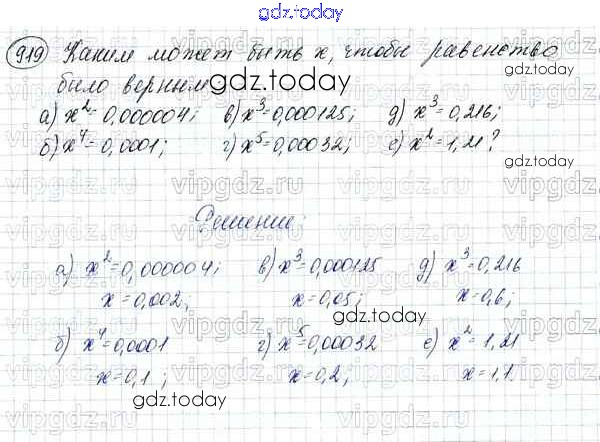 gdz.today
919 Каким может быть х, чтобы равенство
было верным
gdz.today
а) x²=0,000004; в) x³=0,000125; д) x³=0,216;
б) x⁴=0,0001; г) x⁵=0,00032; е) x²=1,21?
gdz.today
vipgdz.ru vipgdz.ru vipgdz.ru
Решение:
а) x²=0,000004; в) x³=0,000125 д) x³=0,216
x=0,002; x=0,05; x=0,6;
gdz.today
б) x⁴=0,0001 г) x⁵=0,00032 е) x²=1,21
x=0,1; x=0,2; x=1,1.
gdz.today